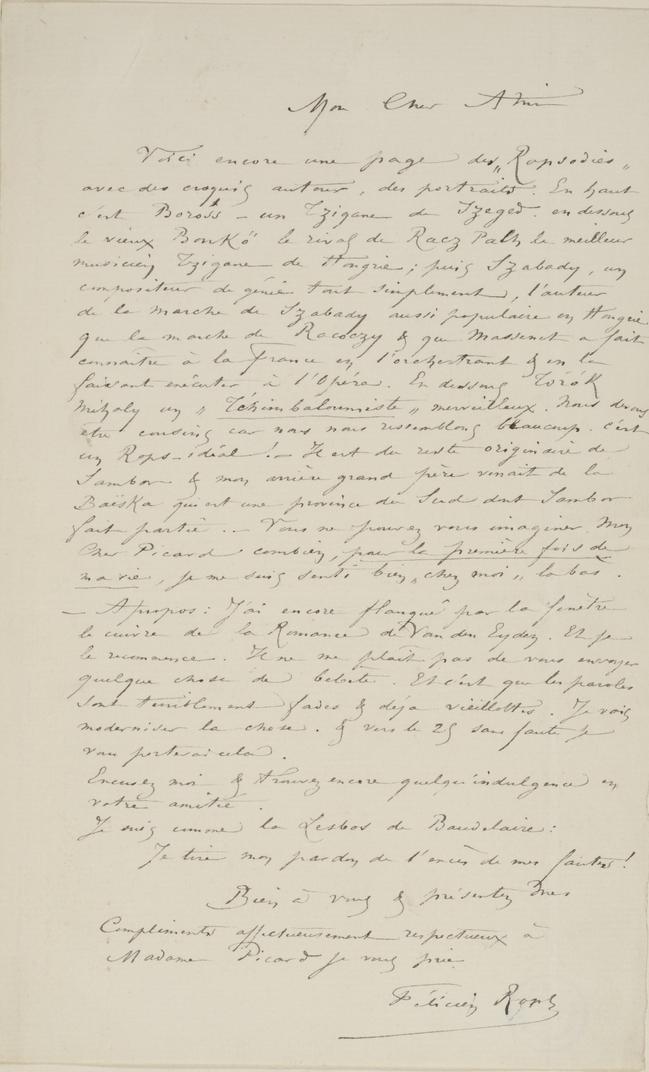 Mon Cher Ami
Voici encore une page des „Rapsodies„
avec des croquis autour, des portraits. En haut
c'est Boross – un Tzigane de Szeged. en dessous
le vieux Bonkö le rival de Racz Palh le meilleur
musicien Tzigane de Hongrie ; puis Szabady, un
compositeur de génie tout simplement, l'auteur
de la marche de Szabady aussi populaire en Hongrie
que la marche de Racoczy & que Massenet a fait
connaître à la France en l'orchestrant & en la
faisant exécuter à l'Opéra. En dessous Török
Mihaly un „ Tchimbaloumiste „ merveilleux. Nous devons
être cousins car nous nous ressemblons beaucoup. c'est
un Rops-idéal ! – Il est du reste originaire de
Sambor & mon arrière grand père venait de la
Baïska qui est une province du Sud dont Sambor
fait partie. – Vous ne pouvez vous imaginer Mon
Cher Picard combien, pour la première fois de
ma vie, je me suis senti bien „chez moi„ là bas.
– Apropos : J'ai encore flanqué par la fenêtre
le cuivre de la Romance de Van den Eyden. Et je
le recommence. Il ne me plaît pas de vous envoyer
quelque chose de bébête. Et c'est que les paroles
sont terriblement fades & déja vieillottes. Je vais
moderniser la chose. & vers le 25 sans faute je
vous porterai cela.
Excusez moi & trouvez encore quelqu'indulgence en
votre amitié.
Je suis comme la Lesbos de Baudelaire :
Je tire mon pardon de l'excès de mes fautes !
Bien à vous & présentez mes
Compliments affectueusement respectueux à
Madame Picard je vous prie
Félicien Rops